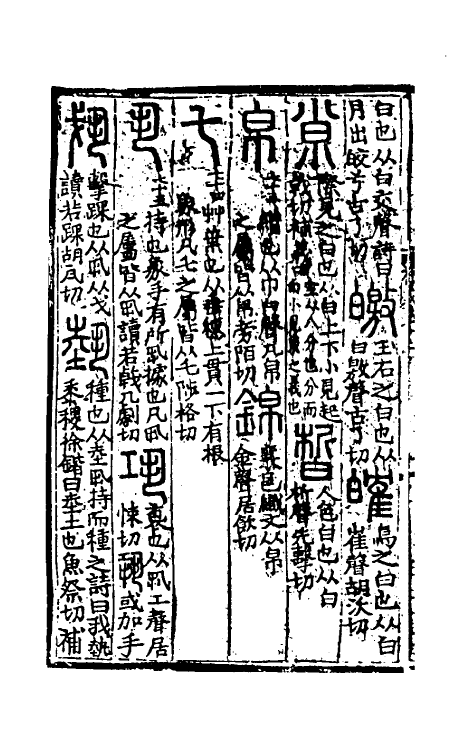 白也从白交聲詩曰
月出皎兮古了切
皦
玉石之白也从
白敫聲古了切
㿥
鳥之白也从白
隺聲胡沃切
𡭴
際見之白也从白上下小見起
戟切補
分也分而
小見
之義也
皙
人色白也从白
析聲先擊切
帛
繒也从巾白聲凡帛
之屬皆从帛旁陌切
錦
襄邑織文从帛
金聲居飲切
乇
艸葉也从垂穗上貫一下有根
象形凡乇之屬皆从乇陟格切
丮
持也象手有所丮據也凡丮
之屬皆从丮讀若戟几劇切
𢀜
袌也从丮工聲居
悚切𢀜或加手
𢧢
擊踝也从丮从戈
讀若踝胡瓦切
埶
種也从坴丮持而種之詩曰我埶
黍稷徐鍇曰坴土也魚祭切補